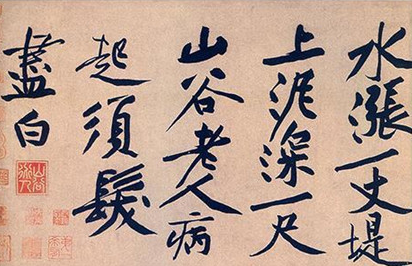 水漲一丈堤
上泥深一尺
山谷老人病
起須髮
盡白